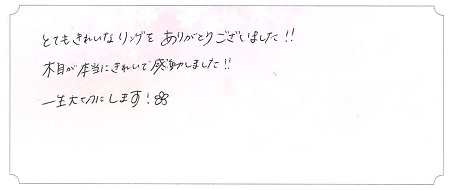 とてもきれいなリングを ありがとうございました!!
木目が本当にきれいで感動しました!!
一生大切にします!